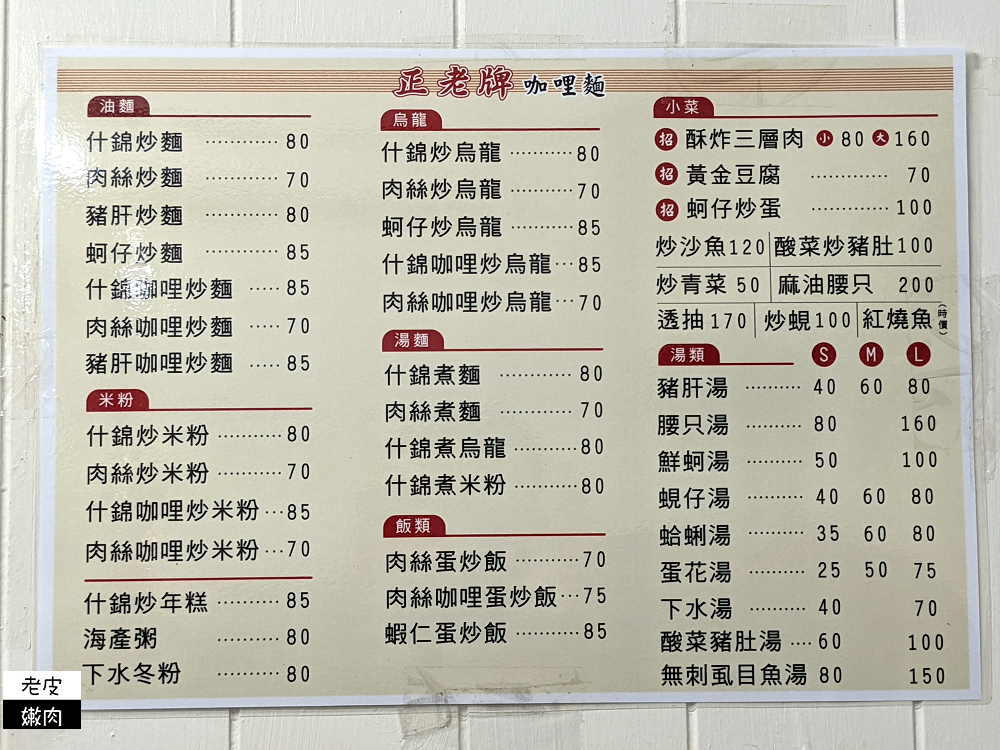 正老牌 咖哩麵
油麵
什錦炒麵 ············ 80
肉絲炒麵 ············ 70
豬肝炒麵 ············ 80
蚵仔炒麵 ············ 85
什錦咖哩炒麵 ····· 85
肉絲咖哩炒麵 ····· 70
豬肝咖哩炒麵 ····· 85
米粉
什錦炒米粉 ··········· 80
肉絲炒米粉 ··········· 70
什錦咖哩炒米粉 ··· 85
肉絲咖哩炒米粉 ··· 70
什錦炒年糕 ·········· 85
海產粥 ·········· 80
下水冬粉 ·········· 80
烏龍
什錦炒烏龍 ··········· 80
肉絲炒烏龍 ··········· 70
蚵仔炒烏龍 ··········· 85
什錦咖哩炒烏龍 ··· 85
肉絲咖哩炒烏龍 ··· 70
湯麵
什錦煮麵 ············ 80
肉絲煮麵 ············ 70
什錦煮烏龍 ··········· 80
什錦煮米粉 ··········· 80
飯類
肉絲蛋炒飯 ··········· 70
肉絲咖哩蛋炒飯 ··· 75
蝦仁蛋炒飯 ··········· 85
小菜
招 酥炸三層肉 小 80 大 160
招 黃金豆腐 ············· 70
招 蚵仔炒蛋 ············· 100
炒沙魚 120 酸菜炒豬肚 100
炒青菜 50 麻油腰只 200
透抽 170 炒蜆 100 紅燒魚(時價)
湯類 S M L
豬肝湯 ·········· 40 60 80
腰只湯 ·········· 80 160
鮮蚵湯 ·········· 50 100
蜆仔湯 ·········· 40 60 80
蛤蜊湯 ·········· 35 60 80
蛋花湯 ·········· 25 50 75
下水湯 ·········· 40 70
酸菜豬肚湯 ···· 60 100
無刺虱目魚湯 80 150
老皮
嫩肉